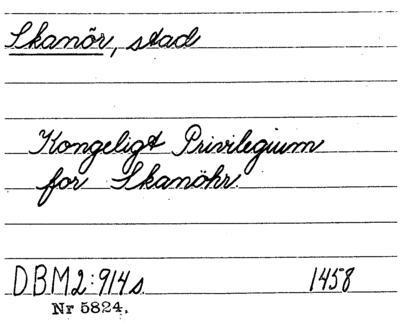 Skanör, stad
Kongeligt Privilegium
for Skanöhr.
DBM2:914s. 1458
Nr 5824.